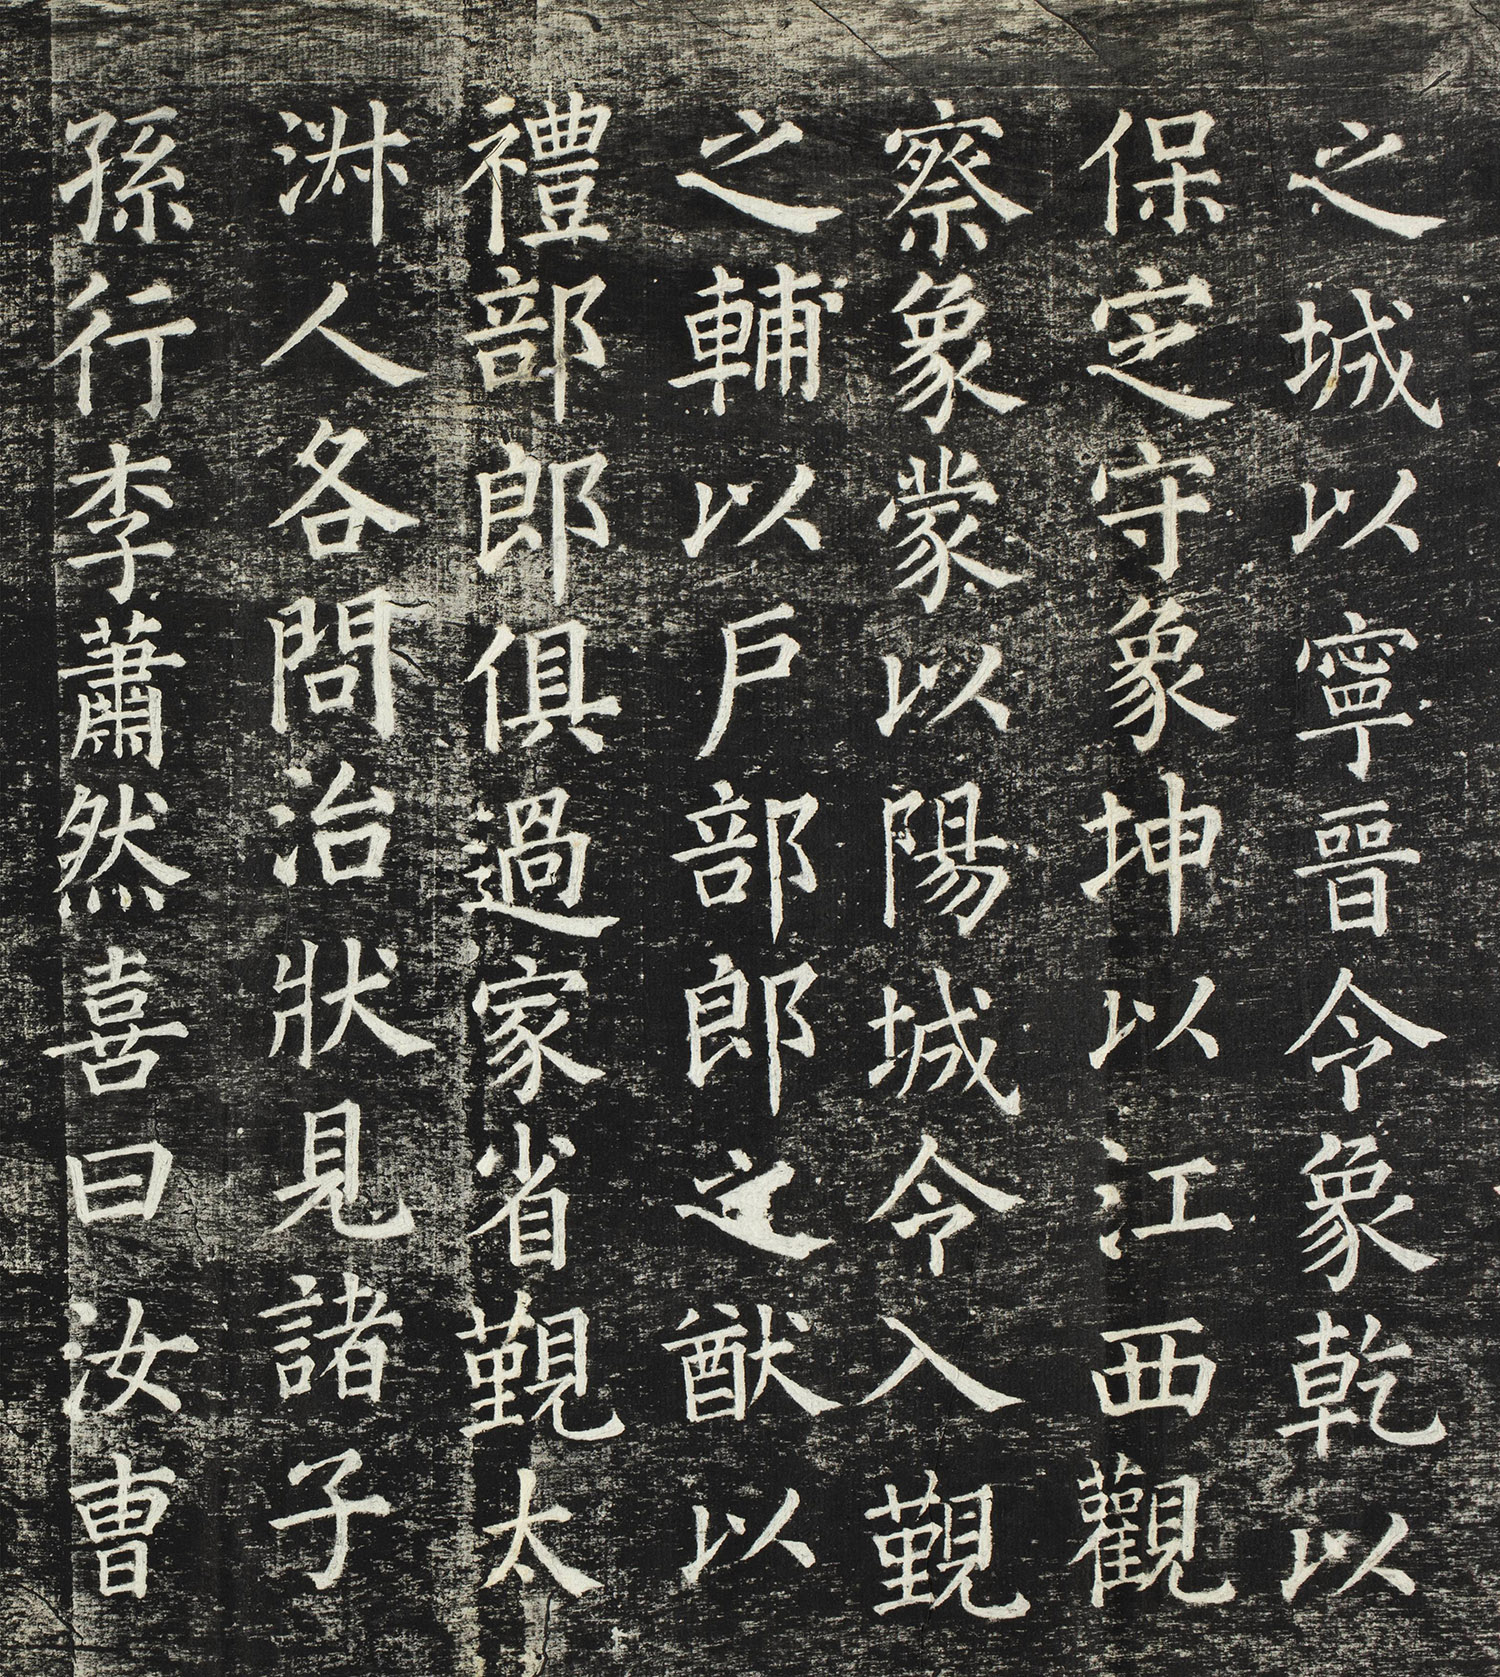 之城以寧晉令象乾以
保定守象坤以江西觀
察象蒙以陽城令入覲
之輔以戶部郎之猷以
禮部郎俱過家省覲太
淑人各問治狀見諸子
孫行李蕭然喜曰汝曹